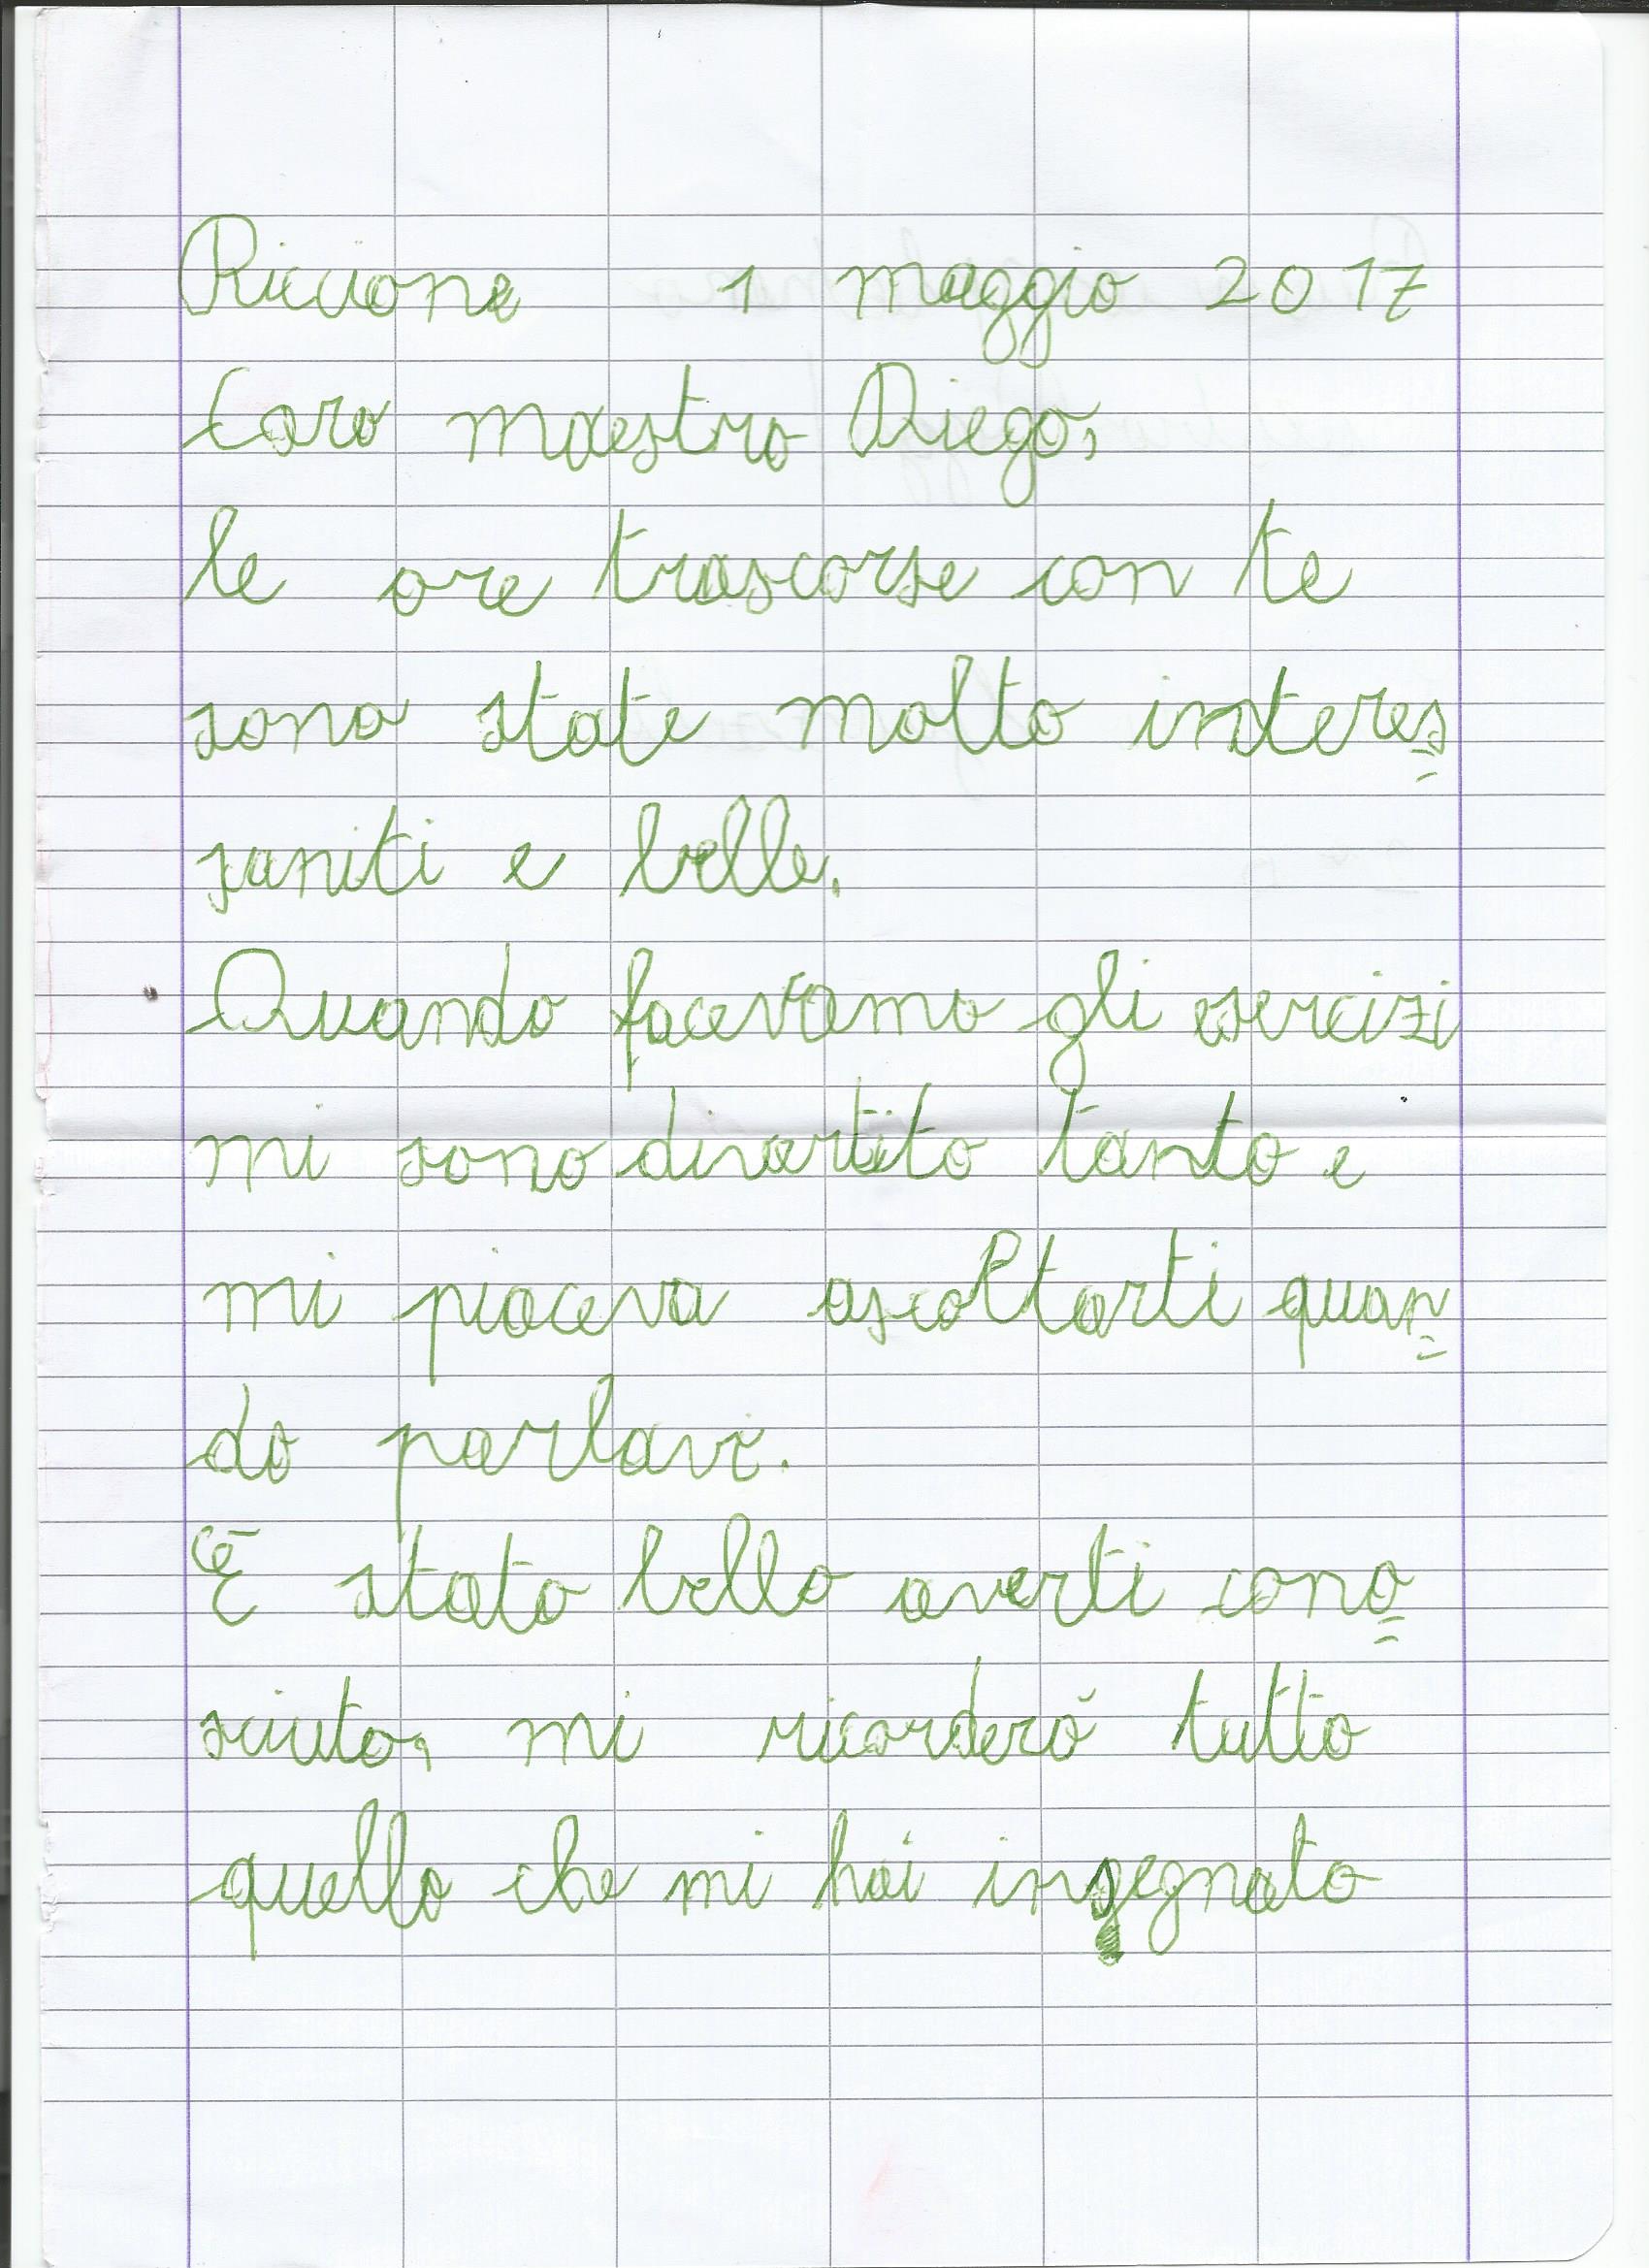 Riccione 1 maggio 2017
Caro maestro Diego,
le ore trascorse con te
sono state molto interes=
saniti e belle.
Quando facevamo gli esercizi
mi sono divertito tanto e
mi piaceva ascoltarti quan=
do parlavi.
È stato bello averti cono=
sciuto, mi ricorderò tutto
quello che mi hai insegnato